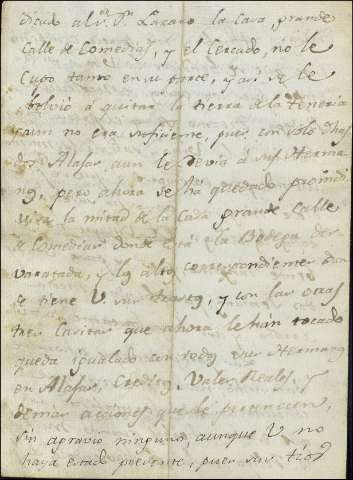 dicado al Sr. Dn. Lazaro la Casa grande
Calle de Comedias, y el Cercado, no le
Cupo tanto en su parte, y asi se le
bolvió á quitar la tierra de la teneria
aun no era suficiente, pues con solo dhas
dos Alajas aun le devia á sus Herma
nos, pero ahora se ha quedado proindi
viso la mitad de la Casa grande Calle
de Comedias donde está la Bodega des
varatada, y los altos correspondientes don
de tiene V. sus trastos, y con las otras
tres Casitas que ahora le han tocado
queda igualado con todos sus Hermanos
en Alajas, Creditos, Vales Reales, y
demas acciones que le pertenecen,
sin agravio ninguno, aunque V. no
haya estado presente, pues sus tios